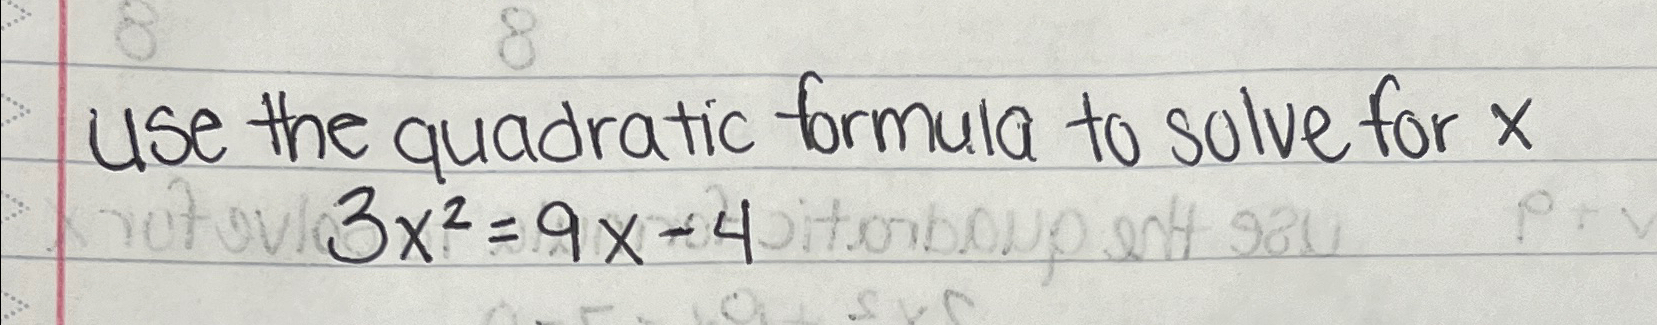 use the quadratic formula to solve for x
3x² = 9x - 4